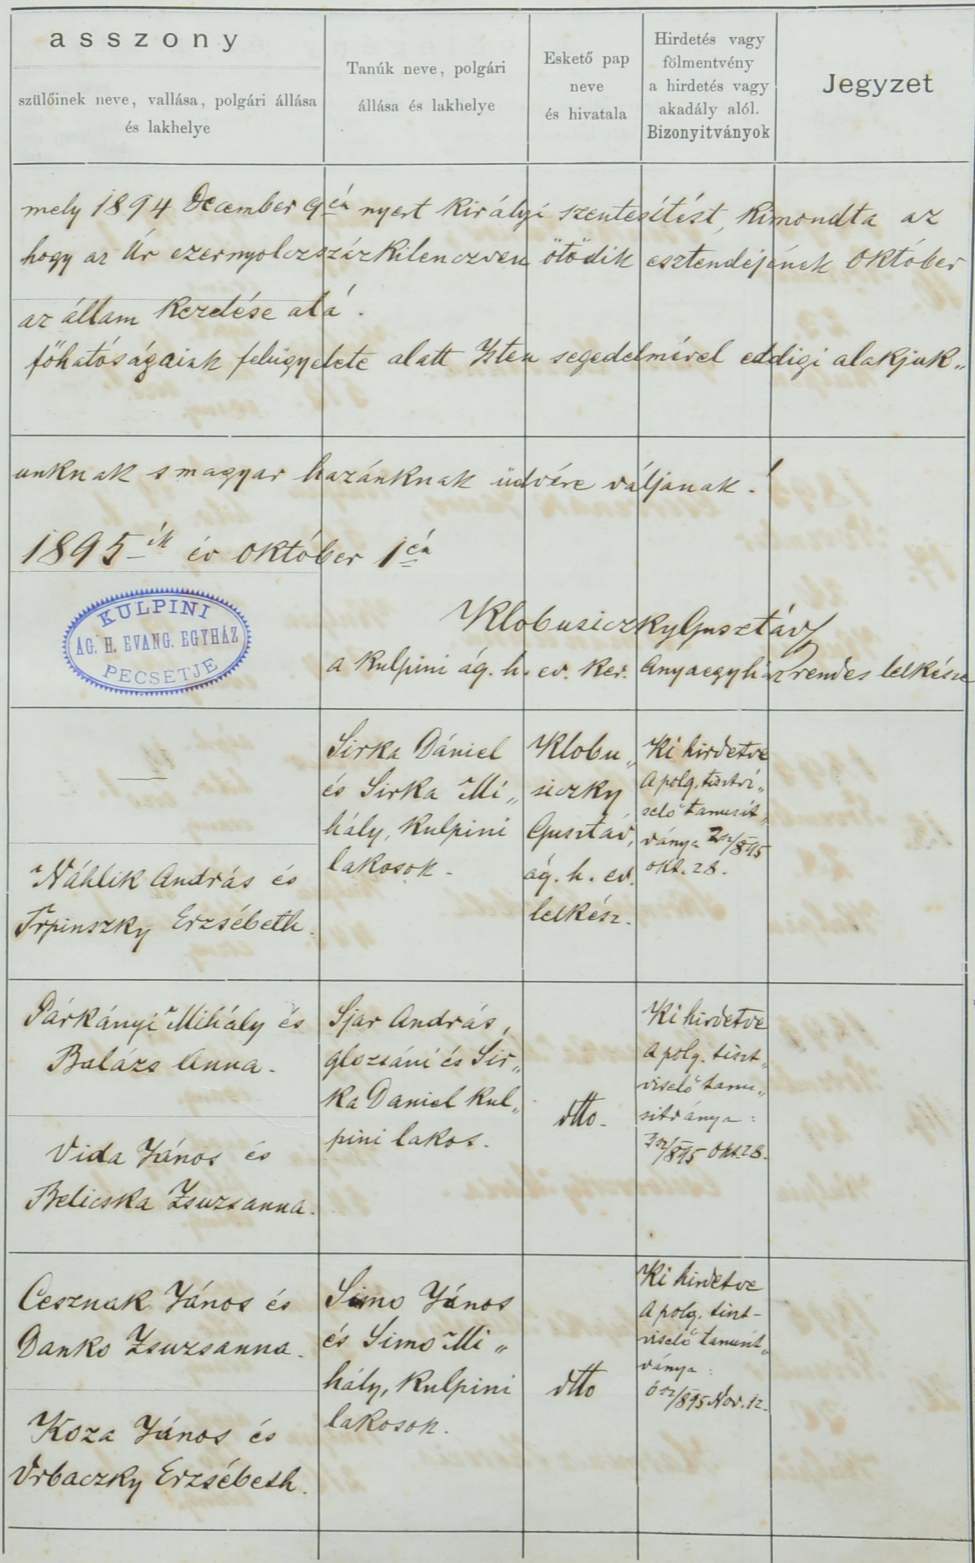 asszony
szülőinek neve, vallása, polgári állása
és lakhelye
Tanúk neve, polgári
állása és lakhelye
Eskető pap
neve
és hivatala
Hirdetés vagy
fölmentvény
a hirdetés vagy
akadály alól.
Bizonyitványok
Jegyzet
mely 1894 December 9én nyert Királyi szentesítést, kimondta az
hogy az Úr ezernyolczszázkilenczven ötödik esztendejének Október
az állam kezelése alá.
főhatóságaink felügyelete alatt Isten segedelmével eddigi alakjuk„
unknak s magyar hazánknak üdvére váljanak.!
1895-ik év október 1én
KULPINI
ÁG. H. EVANG. EGYHÁZ
PECSETJE
Klobusiczky Gusztáv
a Kulpini ág. h. ev. ker. anyaegyház rendes lelkésze
—
Náhlik András és
Trpinszky Erzsébeth.
Sirka Dániel
és Sirka Mi„
hály, Kulpini
lakosok.
Klobu„
siczky
Gusztáv,
ág. h. ev.
lelkész.
Ki hirdetve
A polg. tisztvi„
selő tanusít„
ványa
okt. 28.
Párkányi Mihály és
Balázs Anna.
Vida János és
Belicska Zsuzsanna.
Sjar András,
glozsáni és Sir„
ka Daniel Kul„
pini lakos.
dtto.
Ki hirdetve
A polg. tiszt„
viselő tanu„
sitványa:
/895 Okt. 28.
Cesznak János és
Danko Zsuzsanna.
Koza János és
Vrbaczky Erzsébeth.
Simo János
és Simo Mi„
hály, Kulpini
lakosok.
dtto
Ki hirdetve
A polg. tiszt-
viselő tanusít„
ványa:
/895 Nov. 12.